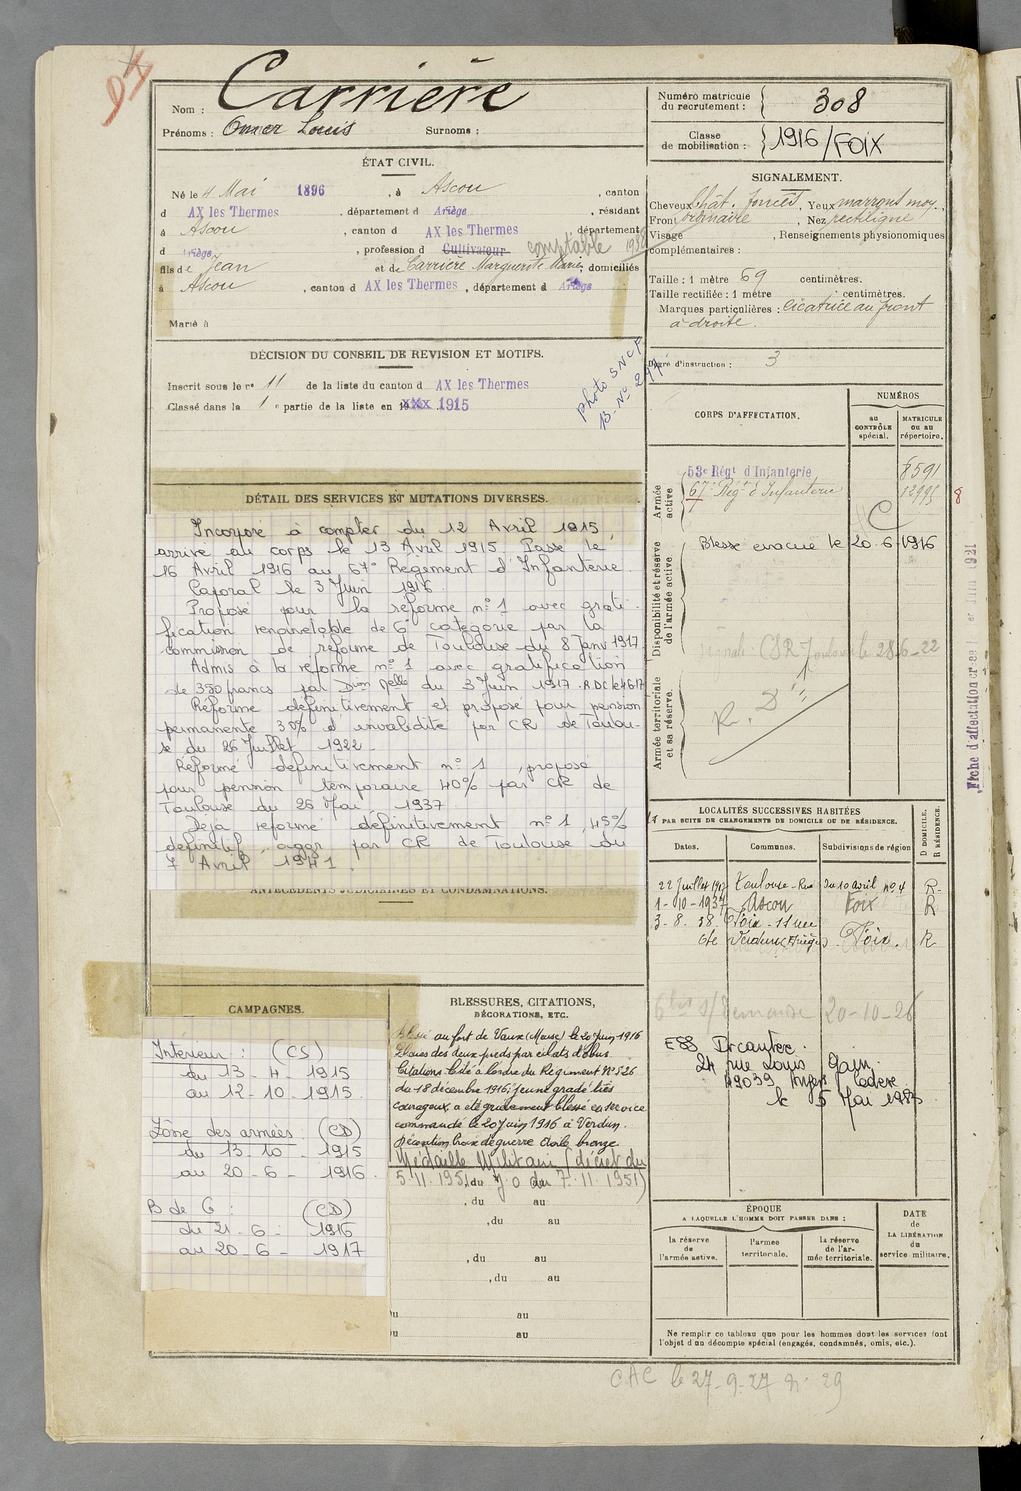 Nom : Carrière
Prénoms : Omer Louis Surnoms :
Numéro matricule
du recrutement : 308
Classe
de mobilisation : 1916/FOIX
ÉTAT CIVIL.
Né le 4 Mai 1896, à Ascou, canton
d AX les Thermes, département d Ariège, résidant
à Ascou, canton d AX les Thermes département
d Ariège, profession d Cultivateur comptable 1938
fils de Jean et de Carrière Marguerite Marie; domiciliés
à Ascou, canton d AX les Thermes, département d Ariège
Marié à
SIGNALEMENT.
Cheveux chât. foncés, Yeux marrons moy.,
Front ordinaire, Nez rectiligne
Visage , Renseignements physionomiques
complémentaires :
Taille : 1 mètre 69 centimètres.
Taille rectifiée : 1 mètre centimètres.
Marques particulières : Cicatrice au front
à droite.
Degré d'instruction : 3
DÉCISION DU CONSEIL DE REVISION ET MOTIFS.
Inscrit sous le n° 11 de la liste du canton d AX les Thermes
Classé dans la 1e partie de la liste en 1915
photo SNCF
CORPS D'AFFECTATION.
NUMÉROS
au CONTRÔLE spécial.
MATRICULE ou au répertoire.
Armée active
53e Régt d'Infanterie 8591
67e Régt d'Infanterie 12995
C
8
Disponibilité et réserve de l'armée active.
Blessé évacué le 20-6-1916
CSR Toulouse le 28-6-22
Armée territoriale et sa réserve.
R. D. n° 1
Fiche d'affectation créée 1er Juin 1921
DÉTAIL DES SERVICES ET MUTATIONS DIVERSES.
Incorporé à compter du 12 Avril 1915,
arrivé au corps le 13 Avril 1915. Passé le
16 Avril 1916 au 67e Régiment d'Infanterie.
Caporal le 3 Juin 1916.
Proposé pour la réforme n° 1 avec grati-
fication renouvelable de 6e catégorie par la
commission de réforme de Toulouse du 8 Janv 1917
Admis à la réforme n° 1 avec gratification
de 350 francs par Dion Melle du 3 Juin 1917.
Réformé définitivement et proposé pour pension
permanente 30% d'invalidité par CR de Toulou-
se du 26 Juillet 1922
Réformé définitivement n° 1, proposé
pour pension temporaire 40% par CR de
Toulouse du 25 Mai 1937
Déjà réformé définitivement n° 1, 45%
définitif, aggr par CR de Toulouse du
7 Avril 1941.
ANTÉCÉDENTS JUDICIAIRES ET CONDAMNATIONS.
LOCALITÉS SUCCESSIVES HABITÉES
PAR SUITE DE CHANGEMENTS DE DOMICILE OU DE RÉSIDENCE.
Dates. Communes. Subdivisions de région D DOMICILE. R RÉSIDENCE.
22 Juillet 1917 Toulouse - Rue du 10 avril n° 4 R
1-10-1937 Ascou Foix R
3-8-38 Foix - 11 rue
Ste Verdun (Ariège) Foix. R
20-10-26
ESS Decauter.
24 rue Louis Gain
49039 Angers Cedex
le 5 Mai 1988
CAMPAGNES.
Intérieur : (CS)
du 13-4-1915
au 12-10-1915
Zône des armées (CD)
du 13-10-1915
au 20-6-1916
B de G : (CD)
du 21-6-1916
au 20-6-1917
BLESSURES, CITATIONS,
DÉCORATIONS, ETC.
Blessé au fort de Vaux (Meuse) le 20 Juin 1916
Plaies des deux pieds par éclats d'obus.
Citations : Cité à l'ordre du Régiment N° 526
du 18 décembre 1916; jeune gradé très
courageux, a été grièvement blessé en service
commandé le 20 Juin 1916 à Verdun.
Décoration Croix de guerre étoile bronze.
Médaille Militaire (décret du
5.11.1951, du J.O du 7.11.1951)
, du au
, du au
, du au
, du au
Du au
Du au
ÉPOQUE
A LAQUELLE L'HOMME DOIT PASSER DANS :
la réserve de l'armée active.
l'armée territoriale.
la réserve de l'armée territoriale.
DATE
de
LA LIBÉRATION
du
service militaire.
Ne remplir ce tableau que pour les hommes dont les services font
l'objet d'un décompte spécial (engagés, condamnés, omis, etc.).
CAC le 27-9-27 n° 29